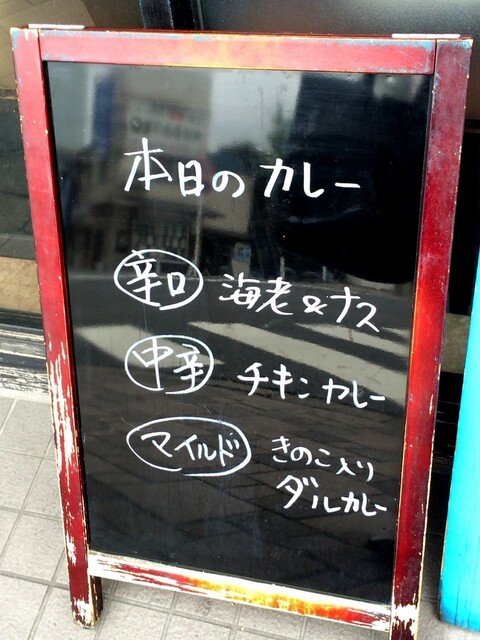 本日のカレー
辛口 海老&ナス
中辛 チキンカレー
マイルド きのこ入り
ダルカレー